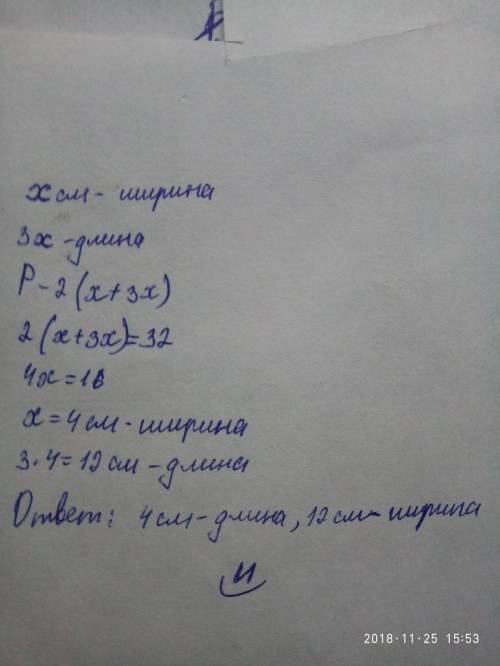 x см - ширина
3x - длина
P - 2 (x + 3x)
2 (x + 3x) = 32
4x = 16
x = 4 см - ширина
3 · 4 = 12 см - длина
Ответ: 4 см - длина, 12 см - ширина
2018-11-25 15:53